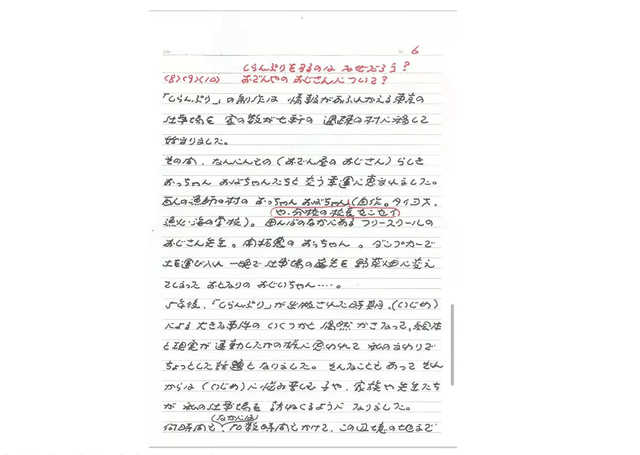 6
しらんぷりをするのは なぜだろう?
(8)(9)(10) おでんやの おじさんについて?
「しらんぷり」の創作は 情報があふれかえる東京の
仕事場を 家の数が七軒の 過疎の村に移して
始まりました。
その間、なんにんもの(おでん屋の おじさん)らしき
おっちゃん おばちゃんたちと 出会う幸運に恵まれました。
の漁師の村の おっちゃん おばちゃん(自作。タイコス、
や、分校の校長センセイ
漁火・海の学校)。田んぼのなかにある フリースクールの
おじさん先生。開拓農の おっちゃん 。ダンプカーで
土を運び入れ 一晩で 仕事場の庭先を 野菜畑に変え
てしまった おとなりの おじいちゃん……。
5年後、「しらんぷり」が出版された時期、(いじめ)
による 大きな事件の いくつかと 偶然 かさなって、絵本
と現実が 連動したかの様に思われて 私のまわりで
ちょっとした話題と なりました。そんなことも あって それ
からは(いじめ)に悩み苦しむ子や、家族や先生たち
が 私の仕事場を 訪ねくるように なりました。
(なかには)
何時間も、10数時間もかけて、この辺境の地まで